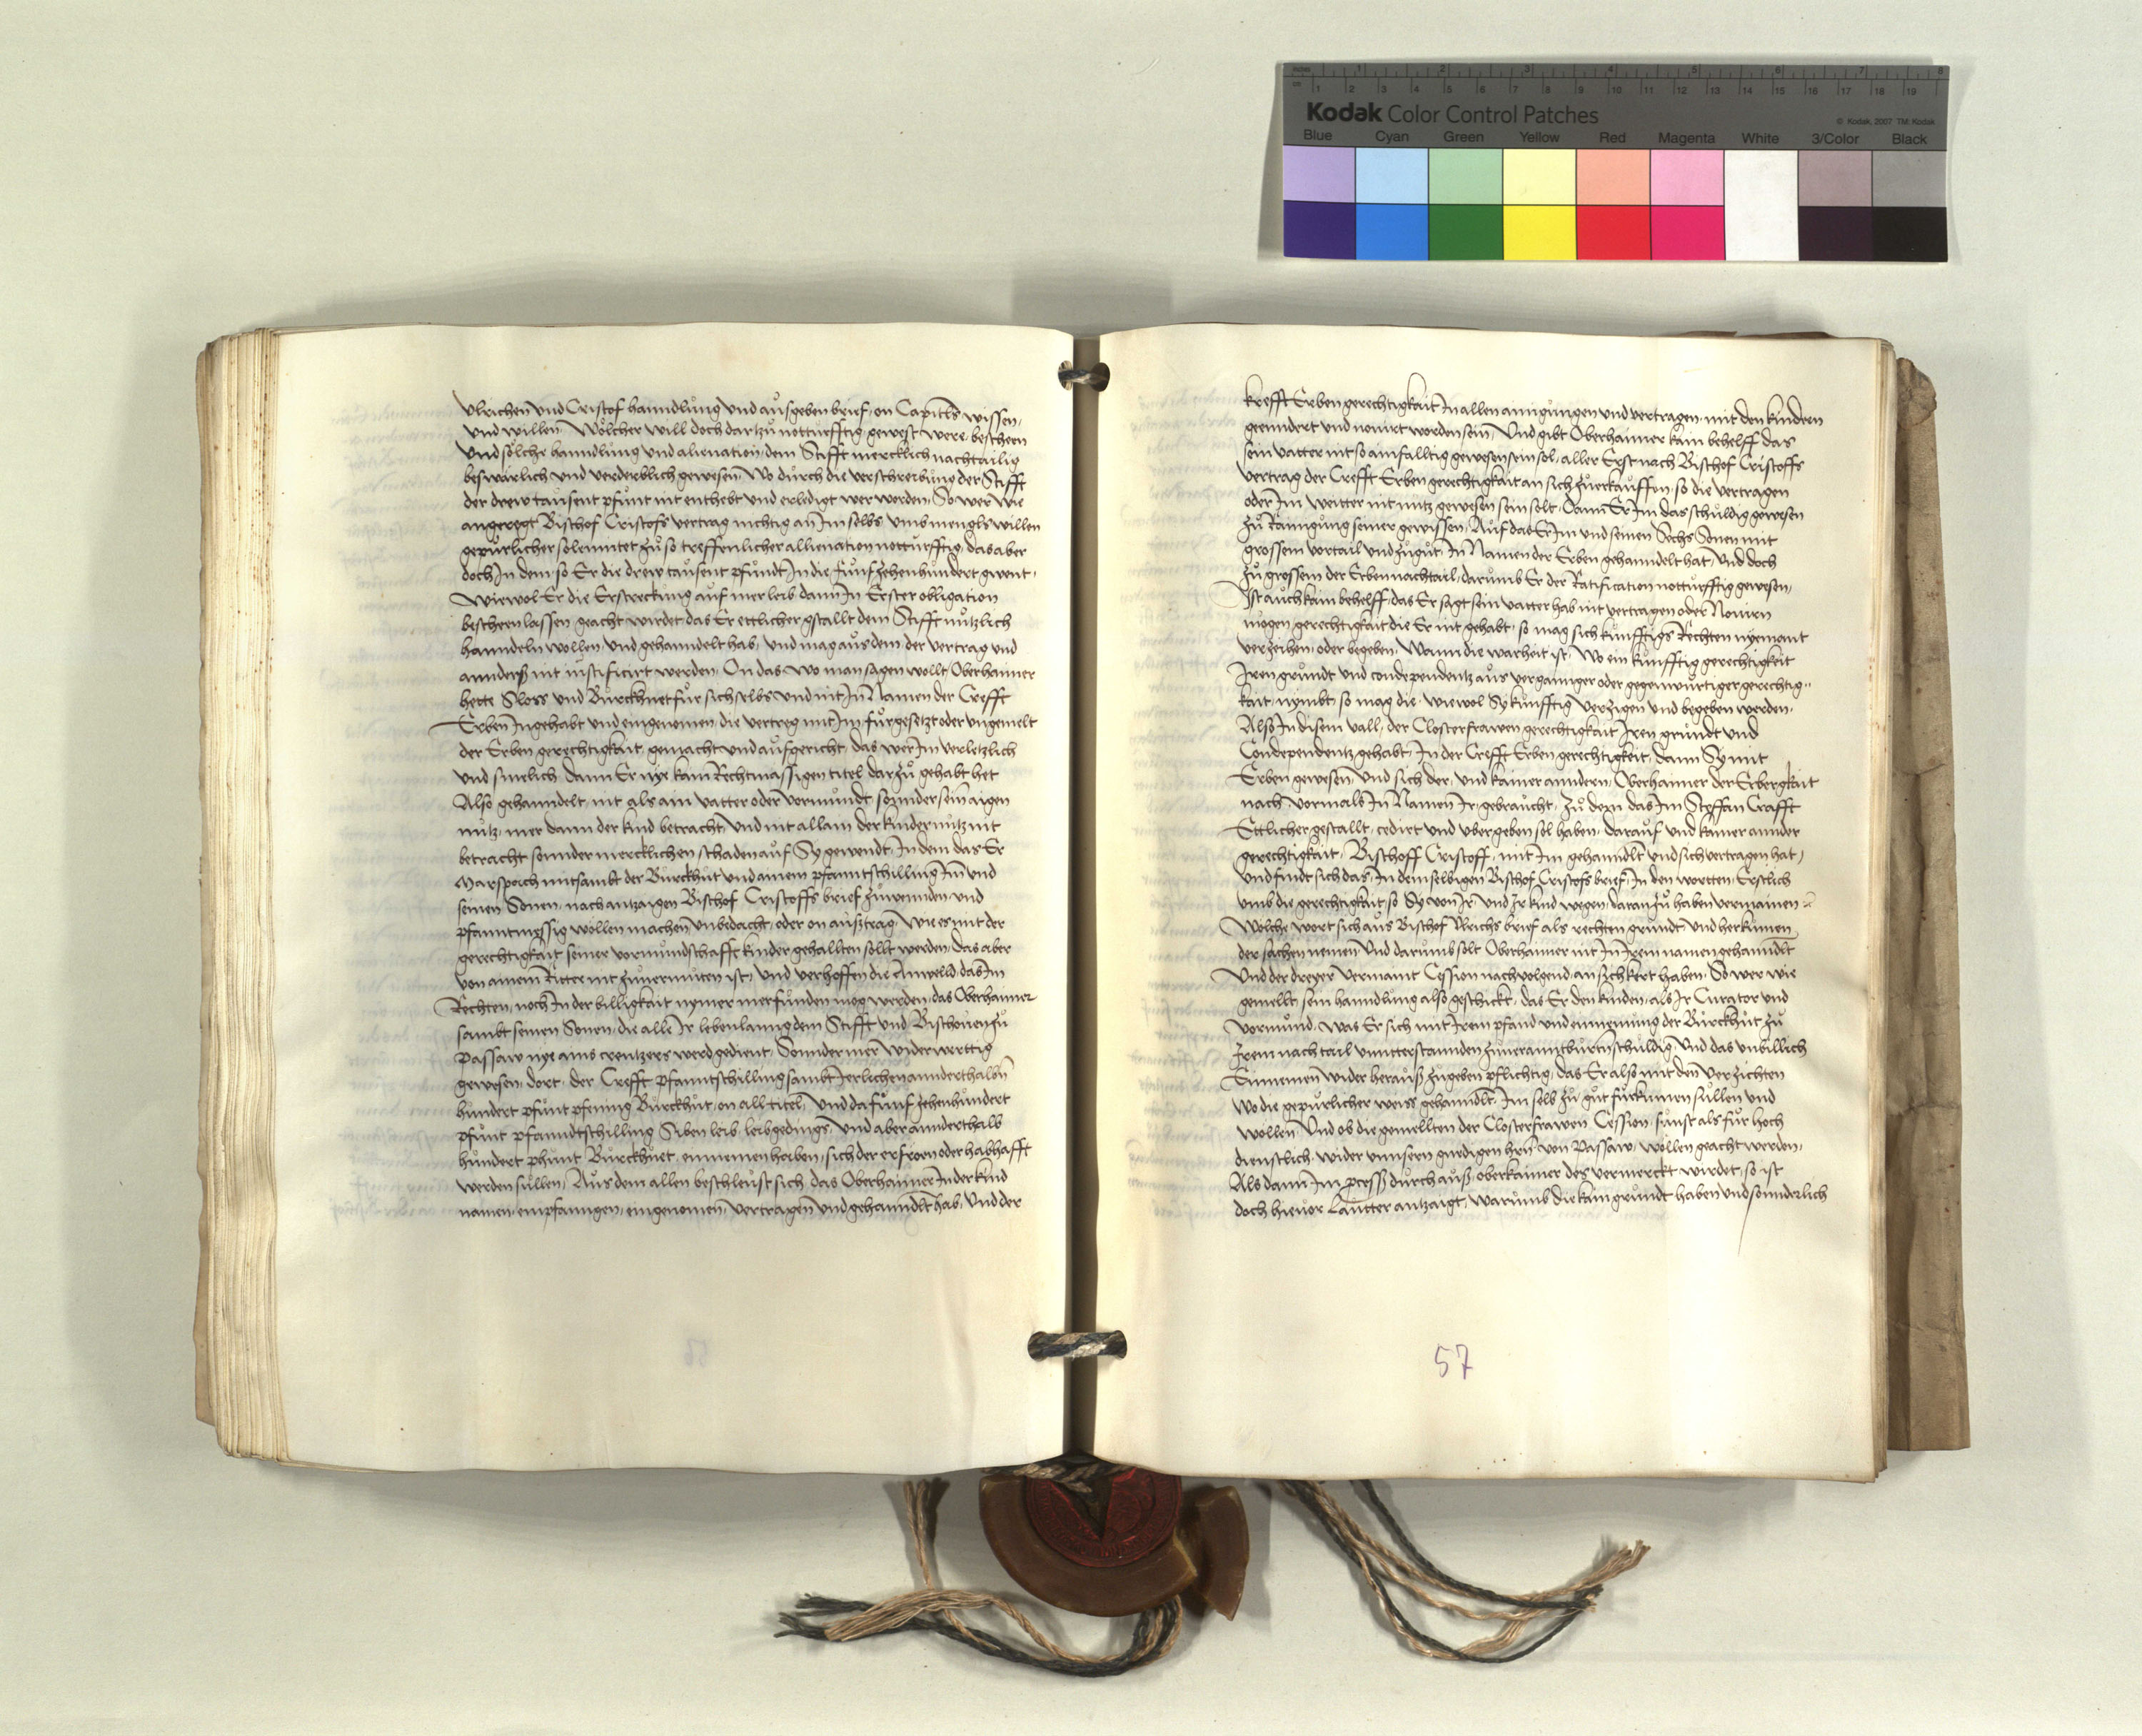 inches 1 2 3 4 5 6 7 8
cm 1 2 3 4 5 6 7 8 9 10 11 12 13 14 15 16 17 18 19
Kodak Color Control Patches
© Kodak, 2007 TM: Kodak
Blue Cyan Green Yellow Red Magenta White 3/Color Black
Ulrichen und Cristof hanndlung und ausgeben brief, on Capittls wissen,
und willen, Wölcher will doch dartzu notturfftig gewest were, bescheen
Und sölche hanndlung und alienation, dem Stifft mercklich nachtailig
beswärlich und verderblich gewesen, Wo durch die verschreibung der Stifft
der drew tausent pfunt nit enthebt und erledigt wer worden, So wer wie
angeregt Bischof Cristofs vertrag nichtig an Im selbs umb mengls willen
gepurlicher solennitet zu so treffenlicher allienation notturfftig, das aber
doch In dem, so Er die drew tausent pfundt In die funfzehenhundert gwent,
Wiewol Er die Erstreckung auf mer leib dann In Erster obligation
bescheen lassen geacht wirdet das Er ettlicher gstallt dem Stifft nutzlich
hanndeln wollen, Und gehanndelt hab, Und mag aus dem der Vertrag und
annders nit iustificirt werden, On das, Wo man sagen wollt Oberhaimer
hette Sloss und Burckhuet fur sich selbs und nit In Namen der Crefft
Erben Ingehabt und eingenomen, die vertreg mit Im furgesetzt oder ungemelt
der Erben gerechtigkait, gemacht und aufgericht, das wer Im verletzlich
und smelich, dann Er nye kain Rechtmassigen titel darzu gehabt het
Also gehanndelt, nit als ain vatter oder vormundt, sonnder sein aigen
nutz, mer dann der kind betracht, Und nit allain der kinder nutz nit
betracht sonnder mercklichen schaden auf Sy gewendt, In dem das Er
Marspach mitsambt der Burckhut und ainem pfanntschilling Im und
seinen Sonen, nach antzaigen Bischof Cristoffs brief zuwennden und
pfanntmessig wollen machen, Unbedacht, oder on austrag, Wie es mit der
gerechtigkait seiner vormundschafft kinder gehallten sollt werden, Das aber
von ainem Ritter nit zuuermuten ist, Und verhoffen die Anweld, das Im
Rechten, noch In der billigkait nymer mer funden mog werden, das Oberhaimer
sambt seinen Sonen, die alle Ir lebenlanng dem Stifft und Bischouen zu
Passaw nye ains creutzers werd gedient, Sonnder mer widerwerttig
gewesen, dort, der Crefft pfanntschilling sambt Jerlichen annderthalbn
hundert pfunt pfening Burckhut, on all titel, Und da funfzehenhundert
pfunt pfanndtschilling Siben leib, leibgedings, Und aber annderthalb
hundert phunt Burckhuet, einnemen haben, sich der erfroen oder habhafft
werden sullen, Aus dem allen beschleust sich das Oberhaimer In der kind
namen, empfanngen, eingenomen, vertragen und gehanndlt hab, Und der
krefft Erben gerechtigkait In allen ainigungen und vertragen, mit den kindern
geenndert und nouirt worden sein, Und gibt Oberhaimer kain behelff das
sein vatter nit so ainfalltig gewesen sein sol, aller Erst nach Bischof Cristoffs
vertrag der Crefft Erben gerechtigkait an sich zuerkauffen, so die vertragen
oder Im weitter nit nutz gewesen sein solt, Dann Er Im das schuldig gewesen
zu Rainigung seiner gewissen, Auf das Er Im und seinen Sechs Sonen mit
grossem vortail und zugut, In Namen der Erben gehanndelt hat, Und doch
zu grossem der Erben nachtail, darumb Er der Ratification notturfftig gewesen,
Ist auch kain behelff, das Er sagt sein vatter hab nit vertragen oder Nouirn
mögen gerechtigkait die Er nit gehabt, so mag sich kunfftigs Rechten nyemant
verzeihen, oder begeben, Wann die warheit ist, Wo ein kunfftig gerechtigkeit
Iren grundt und condependentz aus vergannger oder gegenwurtiger gerechtig-
kait, nymbt, so mag die, wiewol Sy kunfftig verzigen und begeben werden,
Also In disem vall, der Closterfrawen gerechtigkait Iren grundt und
Condependentz gehabt, In der Crefft Erben gerechtigkeit, dann Sy mit
Erben gewesen, Und sich der, und kainer anndern, Oberhaimer der Erbergkait
nach, vormals In Namen Ir, gebraucht, zu dem das Im Steffan Crafft
Ettlicher gestallt, cedirt und ubergeben sol haben, darauf und kainer annder
gerechtigkait, Bischoff Cristoff, mit Im gehanndlt und sich vertragen hat,
Und findt sich das, In demselbigen Bischof Cristofs brief, In den wortten, Erstlich
umb die gerechtigkait, so Sy von Ir und Ir kind wegen, daran zu haben vermainen
Wölche wort sich aus Bischof Ulrichs brief als rechten grundt und herkumen
der sachen nemen, Und darumb solt Oberhaimer nit In Irem namen gehanndlt
Und der dreyer vermaint Cession nachvolgend, an sich kert haben, So wer wie
gemellt, sein hanndlung also geschickt, das Er den kinden, als Ir Curator und
Vormund, Was Er sich mit Irem pfand und einnemung der Burckhut zu
Irem nachtail unnterstannden zuuerantburtn schuldig, Und das unbillich
Einnemen wider heraus zugeben pflichtig, das Er also mit den verzichten
Wo die gepurlicher weiss gehanndlt, Im selb zu gut furkumen sullen und
wollen, Und ob die gemellten der Closterfrawen Cession, sunst als fur hoch
dienstlich, wider unnsern gnedigen hrn von Passaw, wollen geacht werden,
Als dann Im process durch aus, oberkaimer des vermerckt wirdet, so ist
doch hieuor Lautter antzaigt, warumb die kain grundt haben und sonnderlich
57